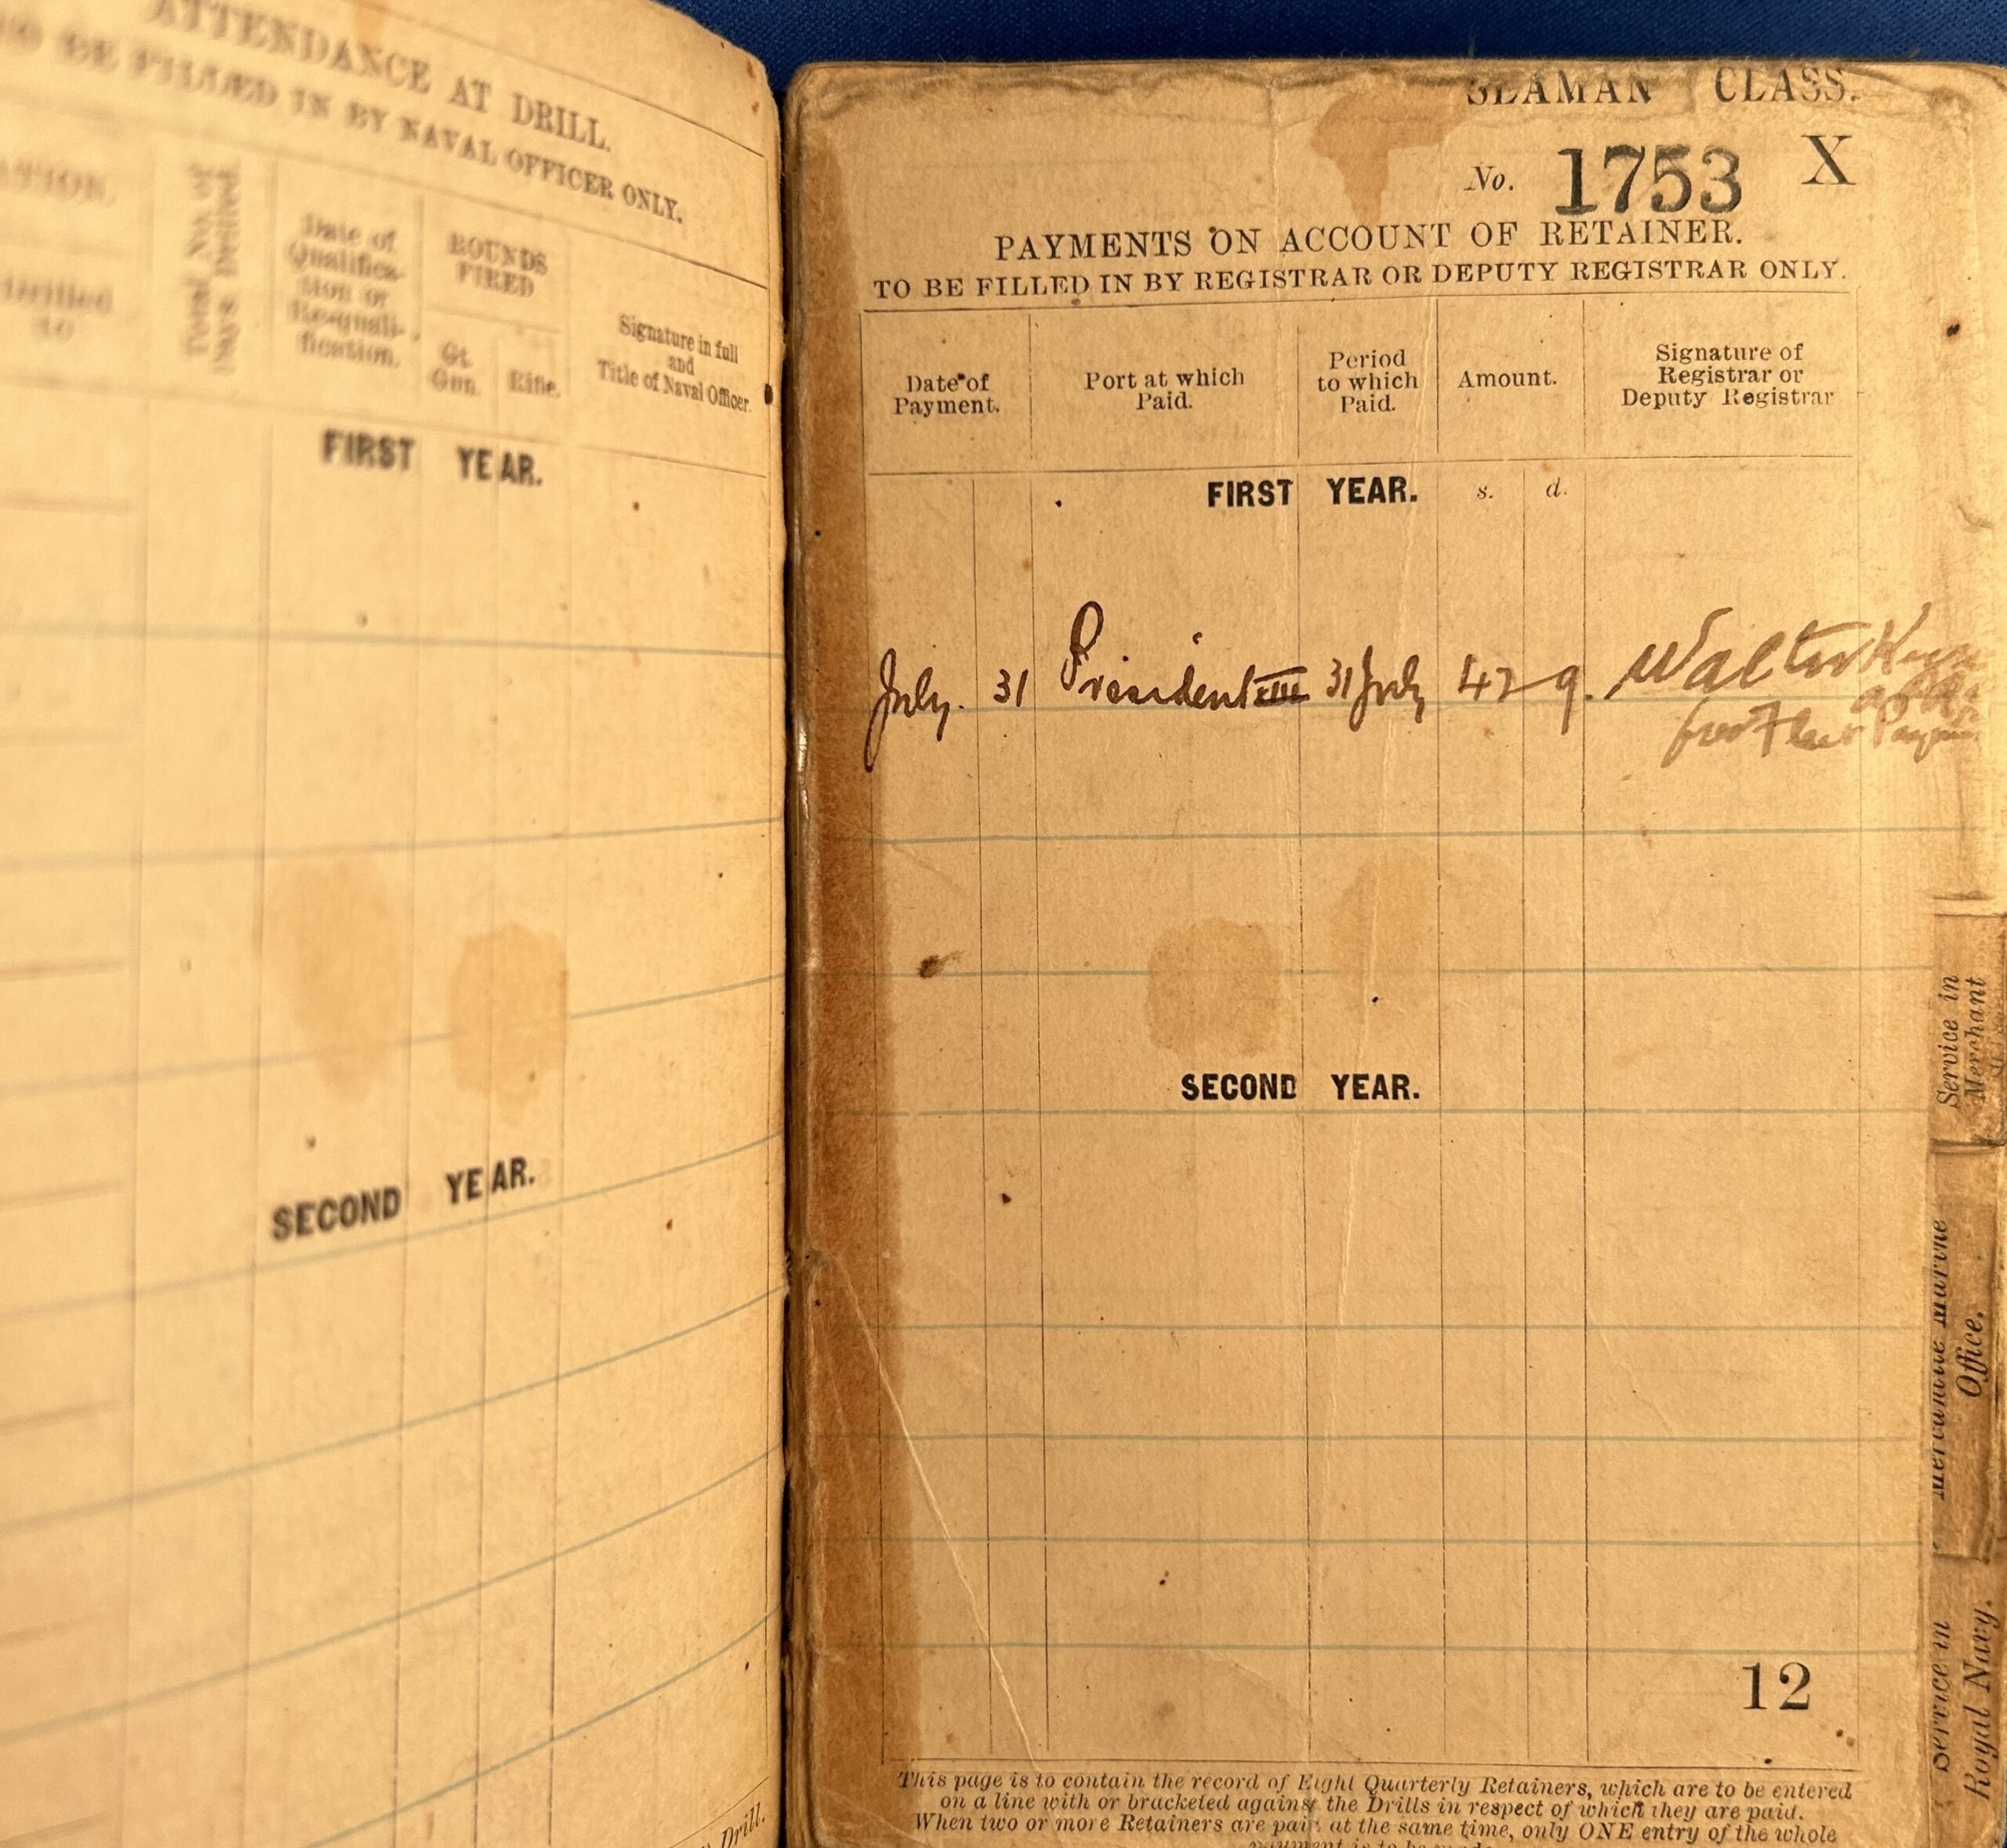 ATTENDANCE AT DRILL.
TO BE FILLED IN BY NAVAL OFFICER ONLY.
Drilled
to
Total No. of
Days Drilled.
Date of
Qualifica-
tion or
Re-quali-
fication.
ROUNDS
FIRED
Gt.
Gun.
Rifle.
Signature in full
and
Title of Naval Officer.
FIRST YEAR.
SECOND YEAR.
Drill.
SEAMAN CLASS.
No. 1753 X
PAYMENTS ON ACCOUNT OF RETAINER.
TO BE FILLED IN BY REGISTRAR OR DEPUTY REGISTRAR ONLY.
Date of
Payment.
Port at which
Paid.
Period
to which
Paid.
Amount.
Signature of
Registrar or
Deputy Registrar
FIRST YEAR. s. d.
July. 31 President III 31 July 42 9. Walter
for Fleet Paym
SECOND YEAR.
12
This page is to contain the record of Eight Quarterly Retainers, which are to be entered
on a line with or bracketed against the Drills in respect of which they are paid.
When two or more Retainers are paid at the same time, only ONE entry of the whole
payment is to be made
Service in
Merchant
Mercantile Marine
Office.
Service in
Royal Navy.